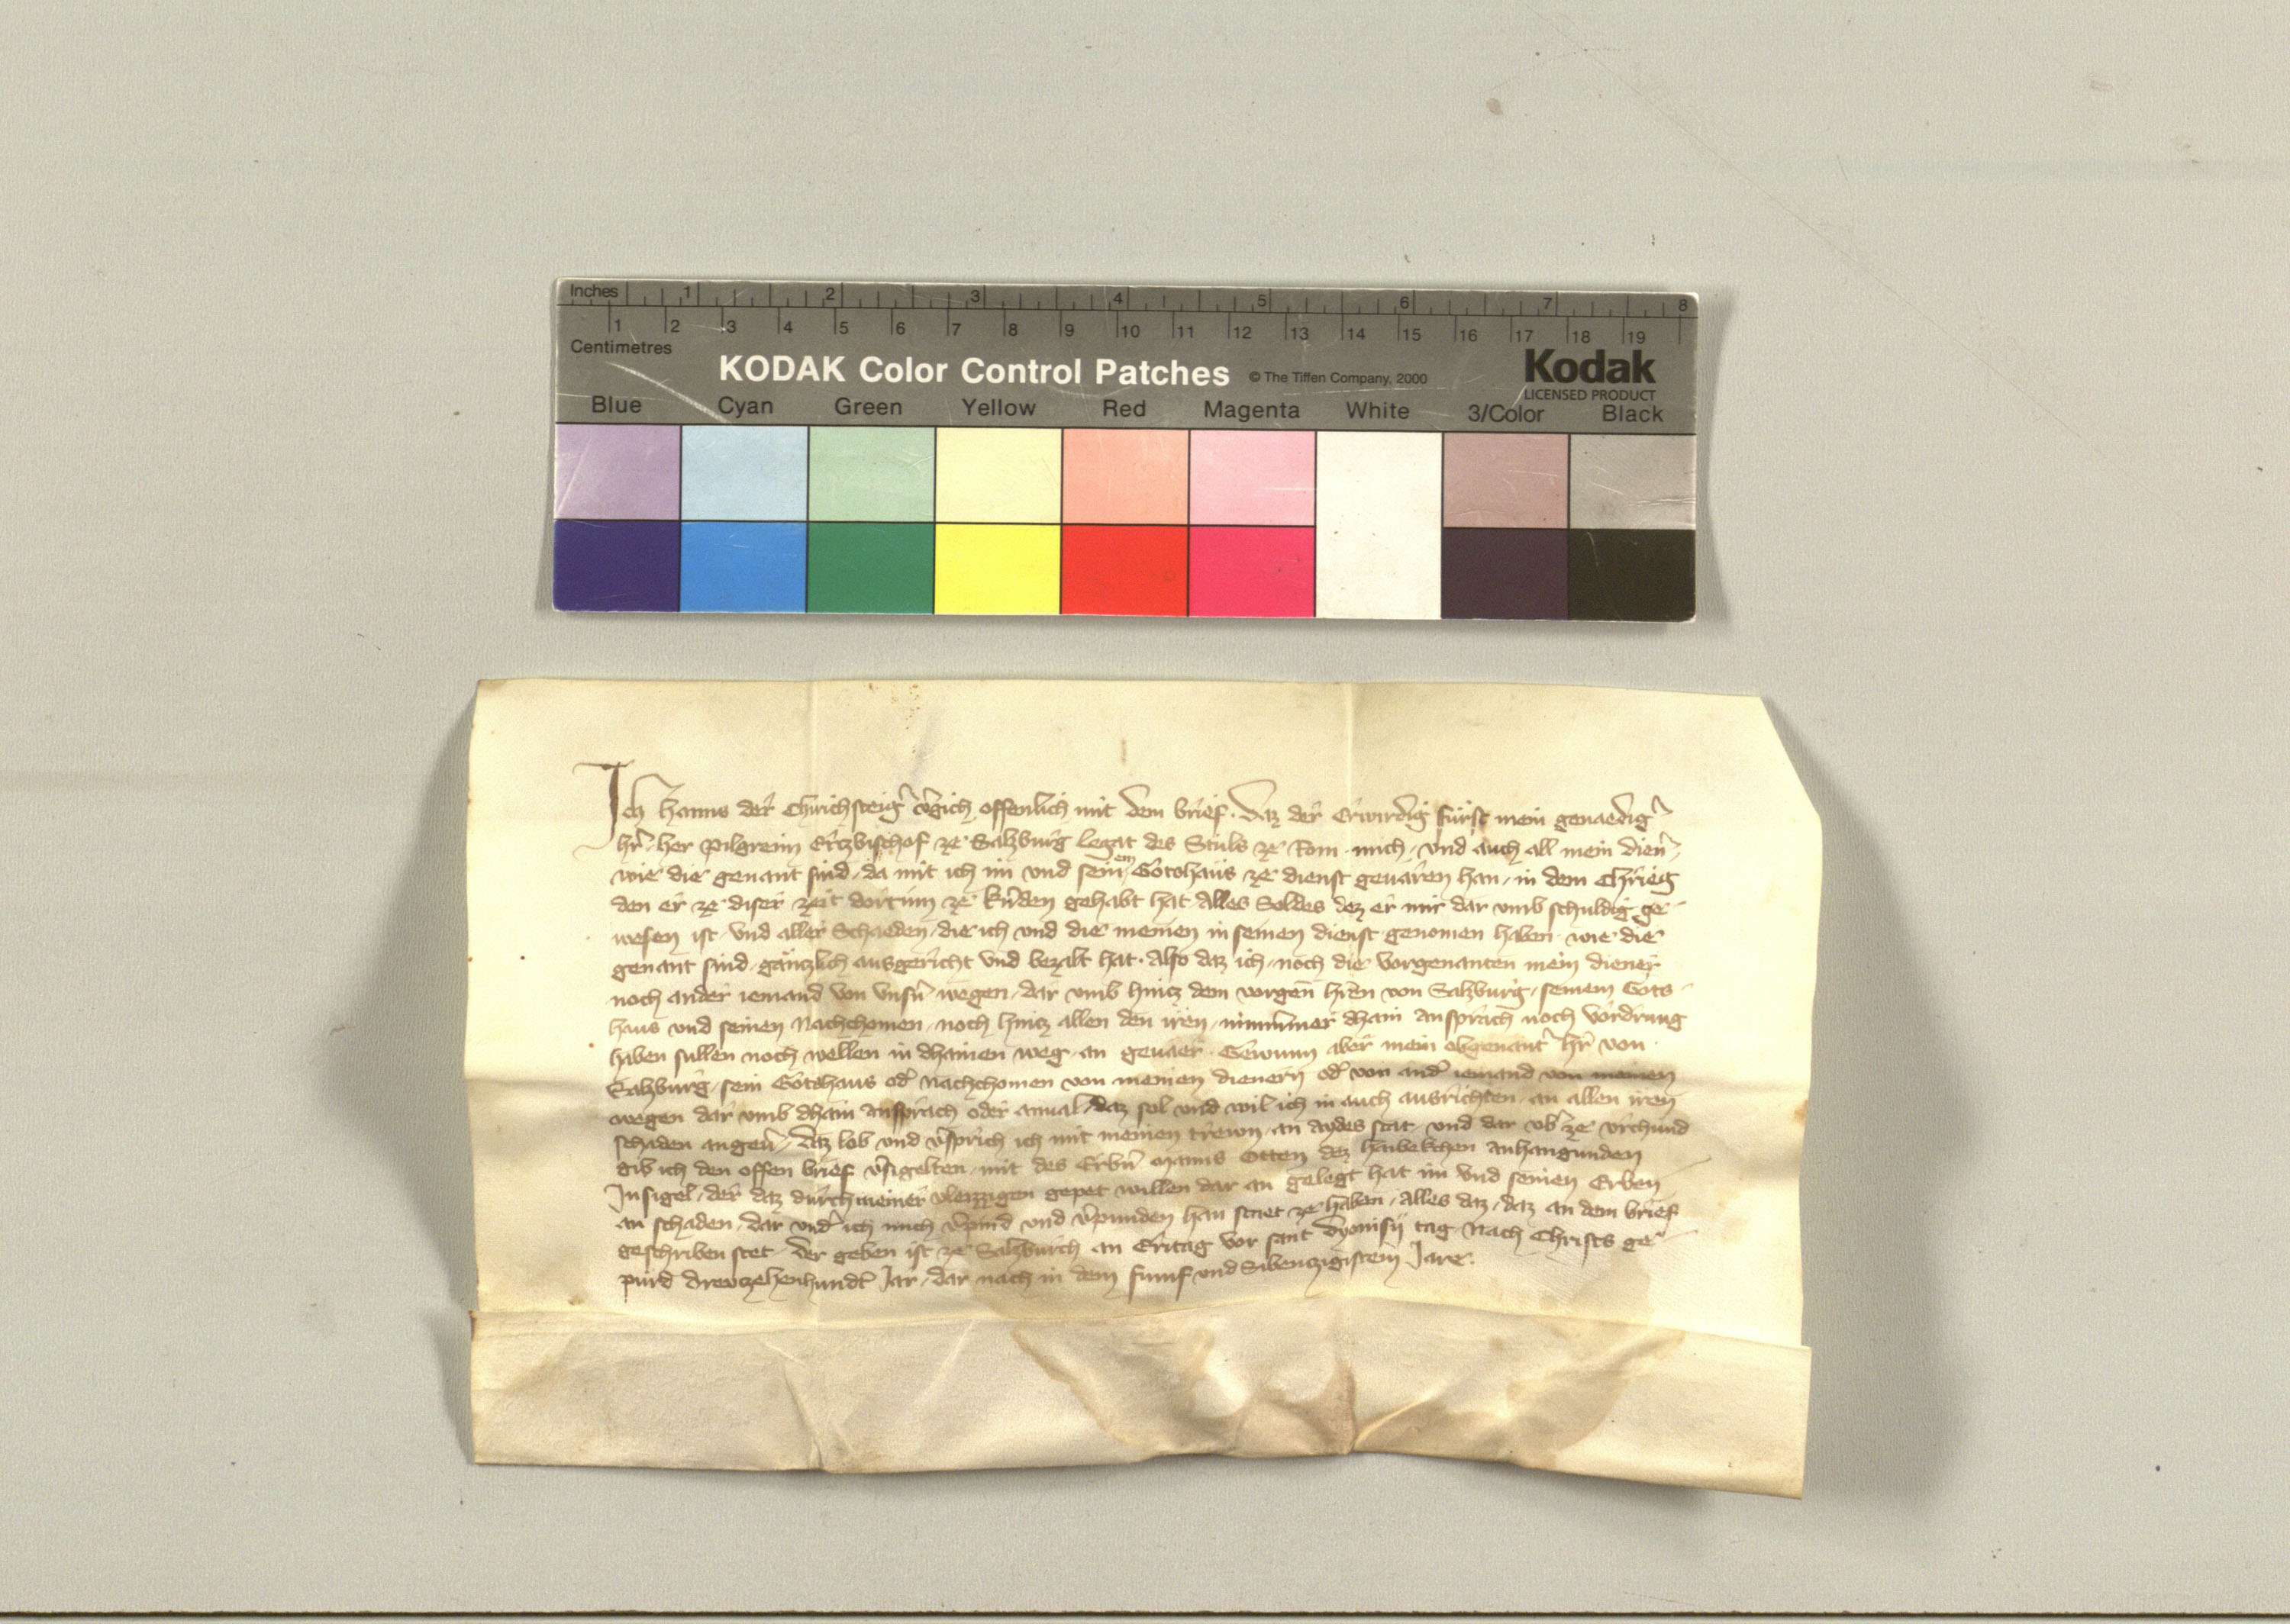 Inches 1 2 3 4 5 6 7 8
1 2 3 4 5 6 7 8 9 10 11 12 13 14 15 16 17 18 19
Centimetres
KODAK Color Control Patches © The Tiffen Company, 2000 Kodak
LICENSED PRODUCT
Blue Cyan Green Yellow Red Magenta White 3/Color Black
Ich Hanns der Chirichsteig̉ v̉gich offenlich mit dem brief. Daz der Erwirdig fürst mein genaedig̉
hr̉ her Pilgreim Ertzbischof ze Salzburg legat des Stuls ze Rom mich und auch all mein dien̉
wie die genant sind da mit ich im und seinem Gotshaus ze dienst geuaren han in dem Chrieg
den er ze diser zeit dort ze gehabt hat Alles Soldes dez er mir dar umb schuldig ge
wesen ist und aller Schaeden die ich und die meinen in seinen dienst genomen haben wie die
genant sind gäntzlich ausgericht und bezalt hat. Also daz ich noch die vorgenanten mein diener
noch ander iemand von unsn̉ wegen dar umb hintz dem vorgen̄ hr̄en von Salzburg seinem Gots
haus und seinen Nachchomen noch hintz allen den iren nimmer dhain ansprach noch vordrung
haben sullen noch wellen in dhainen weg an geuaer. Gewunn aber mein obgenant̉ hr̉ von
Salzburg sein Gotshaus od̉ nachchomen von meinen dienern od̉ von and̉ iemand von meinen
wegen dar umb dhain ansprach oder daz sol und wil ich in auch ausrichten an allen iren
schaden angeủ Daz lob und v̉sprich ich mit meinen trewn an aydes stat und dar ub̉ ze urchund
gib ich den offen brief v̉sigelten mit des Erbn̉ manns Otten dez anhangunden
Insigel der daz durch meiner vleizzigen gepet willen dar an gelegt hat im und seinen Erben
an schaden dar und̉ ich mich v̉pind und v̉punden han staet ze haben Alles daz daz an dem brief
geschriben stet Der geben ist ze Salzburch an Eritag vor sant Dyonisij tag Nach Christs ge
purd drewzehenhund̉t Jar dar nach in dem fumf und Sibenczigistem Jare.